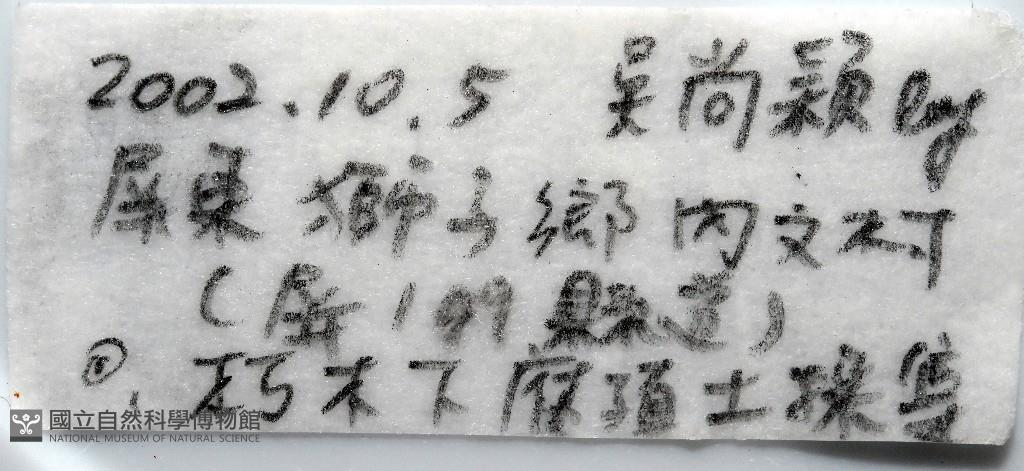 2002.10.5 吳尚穎 leg
屏東 獅子鄉 內文村
(屏199縣道)
① 朽木下 土
國立自然科學博物館
NATIONAL MUSEUM OF NATURAL SCIENCE